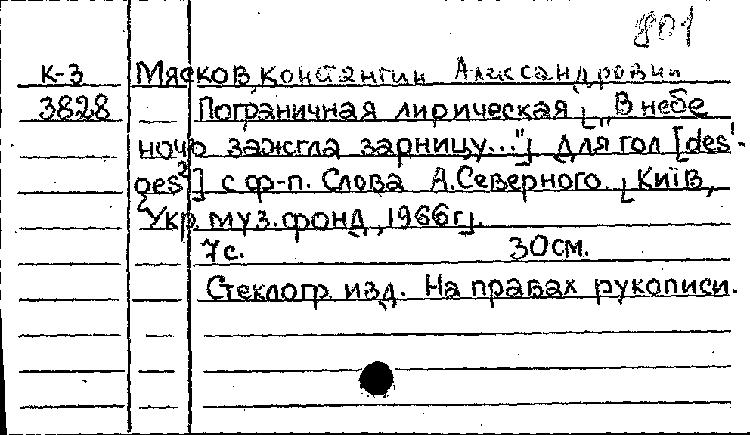 801
К-3 Мясков Константин Александрович
3828 Пограничная лирическая [„В небе
ночь зажгла зарницу..."] Для гол [des'-
des²] с ф-п. Слова А.Северного. [Київ,
Укр. муз. фонд, 1966г].
7с. 30см.
Стеклогр. изд. На правах рукописи.